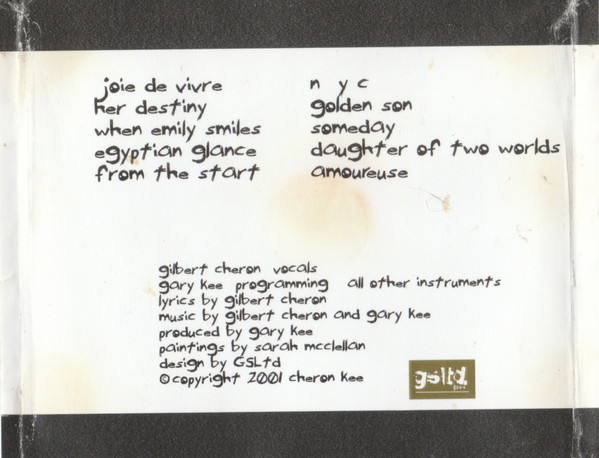 joie de vivre
her destiny
when emily smiles
egyptian glance
from the start
n y c
golden son
someday
daughter of two worlds
amoureuse
gilbert cheron vocals
gary kee programming all other instruments
lyrics by gilbert cheron
music by gilbert cheron and gary kee
produced by gary kee
paintings by sarah mcclellan
design by GSLtd
©copyright 2001 cheron kee
gsltd